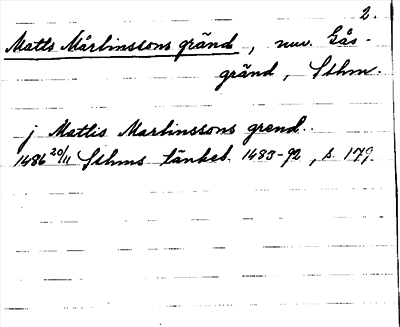 2.
Matts Mårtinssons gränd, nuv. Gås-
gränd, Sthm.
j Mattis Martinssons grend.
1486 20/11 Sthms tänkeb. 1483-92, s. 179.